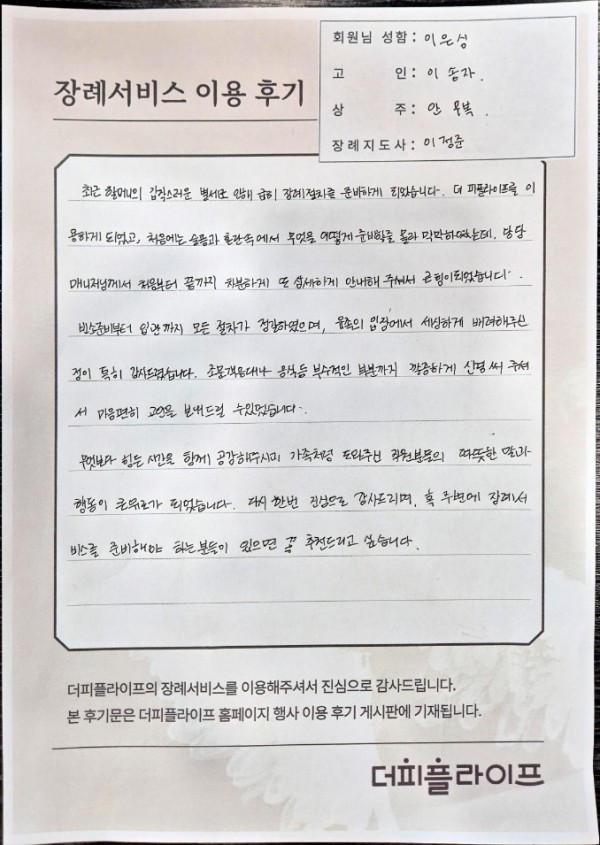 회원님 성함: 이은성
고 인: 이송자.
상 주: 안용복.
장례지도사: 이정준
장례서비스 이용 후기
최근 할머니의 갑작스러운 별세로 인해 급히 장례절차를 준비하게 되었습니다. 더 피플라이프를 이
용하게 되었고, 처음에는 슬픔과 혼란속에서 무엇을 어떻게 준비할줄 몰라 막막하였는데, 담당
매니저님께서 처음부터 끝까지 차분하게 또 섬세하게 안내해 주셔서 큰힘이되었습니다.
빈소준비부터 입관까지 모든 절차가 정갈하였으며, 유족의 입장에서 세심하게 배려해주신
점이 특히 감사드렸습니다. 조문객응대나 음식등 부수적인 부분까지 꼼꼼하게 신경 써 주셔
서 마음편히 고인을 보내드릴 수있었습니다.
무엇보다 힘든 시간을 함께 공감해주시며 가족처럼 도와주신 직원분들의 따뜻한 말과
행동이 큰위로가 되었습니다. 다시 한번 진심으로 감사드리며, 혹 주변에 장례서
비스를 준비해야 하는분들이 있으면 꼭 추천드리고 싶습니다.
더피플라이프의 장례서비스를 이용해주셔서 진심으로 감사드립니다.
본 후기문은 더피플라이프 홈페이지 행사 이용 후기 게시판에 기재됩니다.
더피플라이프